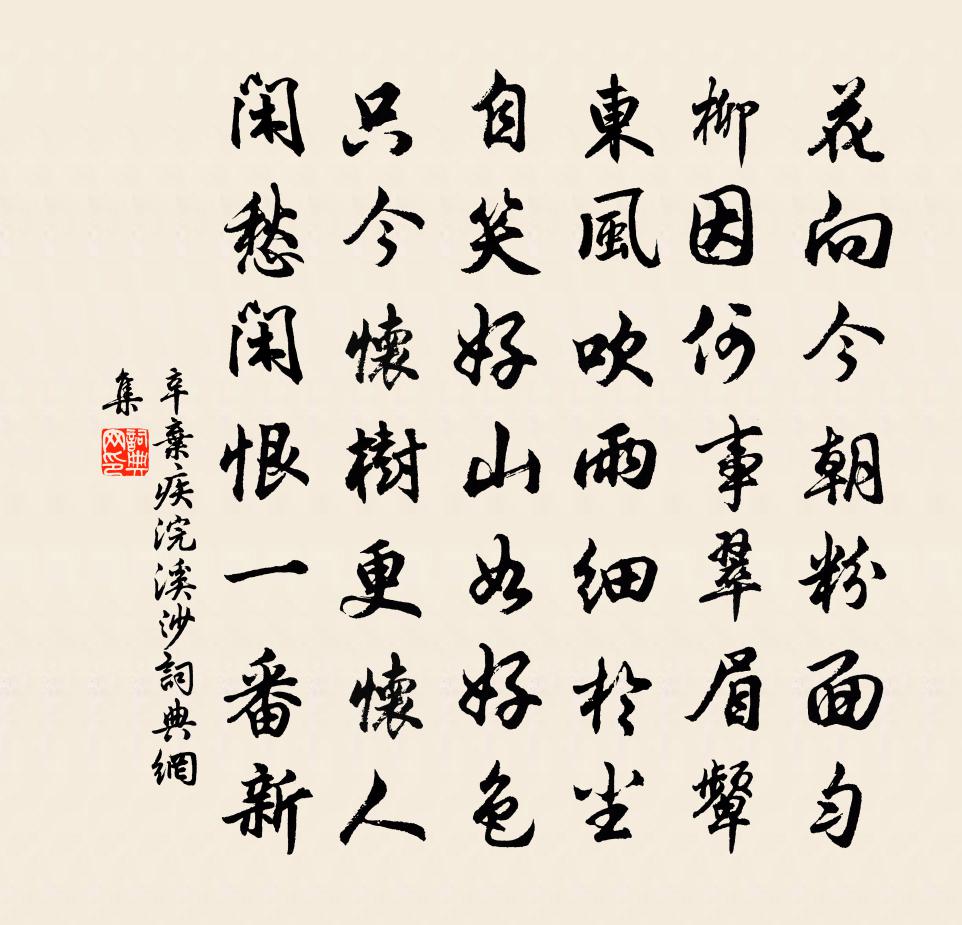 花向今朝粉面勻
柳因何事翠眉顰
東風吹雨細於塵
自笑好山如好色
只今懷樹更懷人
閑愁閑恨一番新
辛棄疾浣溪沙詞典網
集
詞典网印